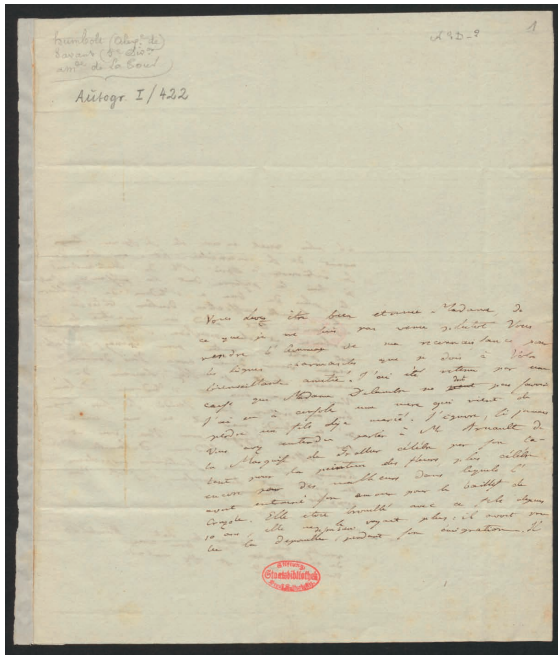 Humboldt (Alex. de)
Autogr. I/422
1
Vous devez être bien etonnée Madame de
ce que je ne suis pas venu plutot Vous
rendre l'hommage de ma reconnaissance pour
les lignes charmantes que je dois à Votre
bienveillante amitié. J'ai été retenu par une
cause que Madame ne doit pas savoir
J'ai eu à consoler une mere qui vient de
perdre un fils deja marié. J'ignore, si jamais
Vous avez entendu parler à M. Arnault de
la Marquise de Grollier célèbre par son ta-
lent pour la peinture des fleurs plus célèbre
encore par des malheurs dans lesquels l'
avoit entrainé son amour pour le Bailli de
Crussol. Elle etoit brouillée avec ce fils depuis
10 ans, elle ne le voyait plus, il avoit
pendant son emigration. Il
Staatsbibliothek